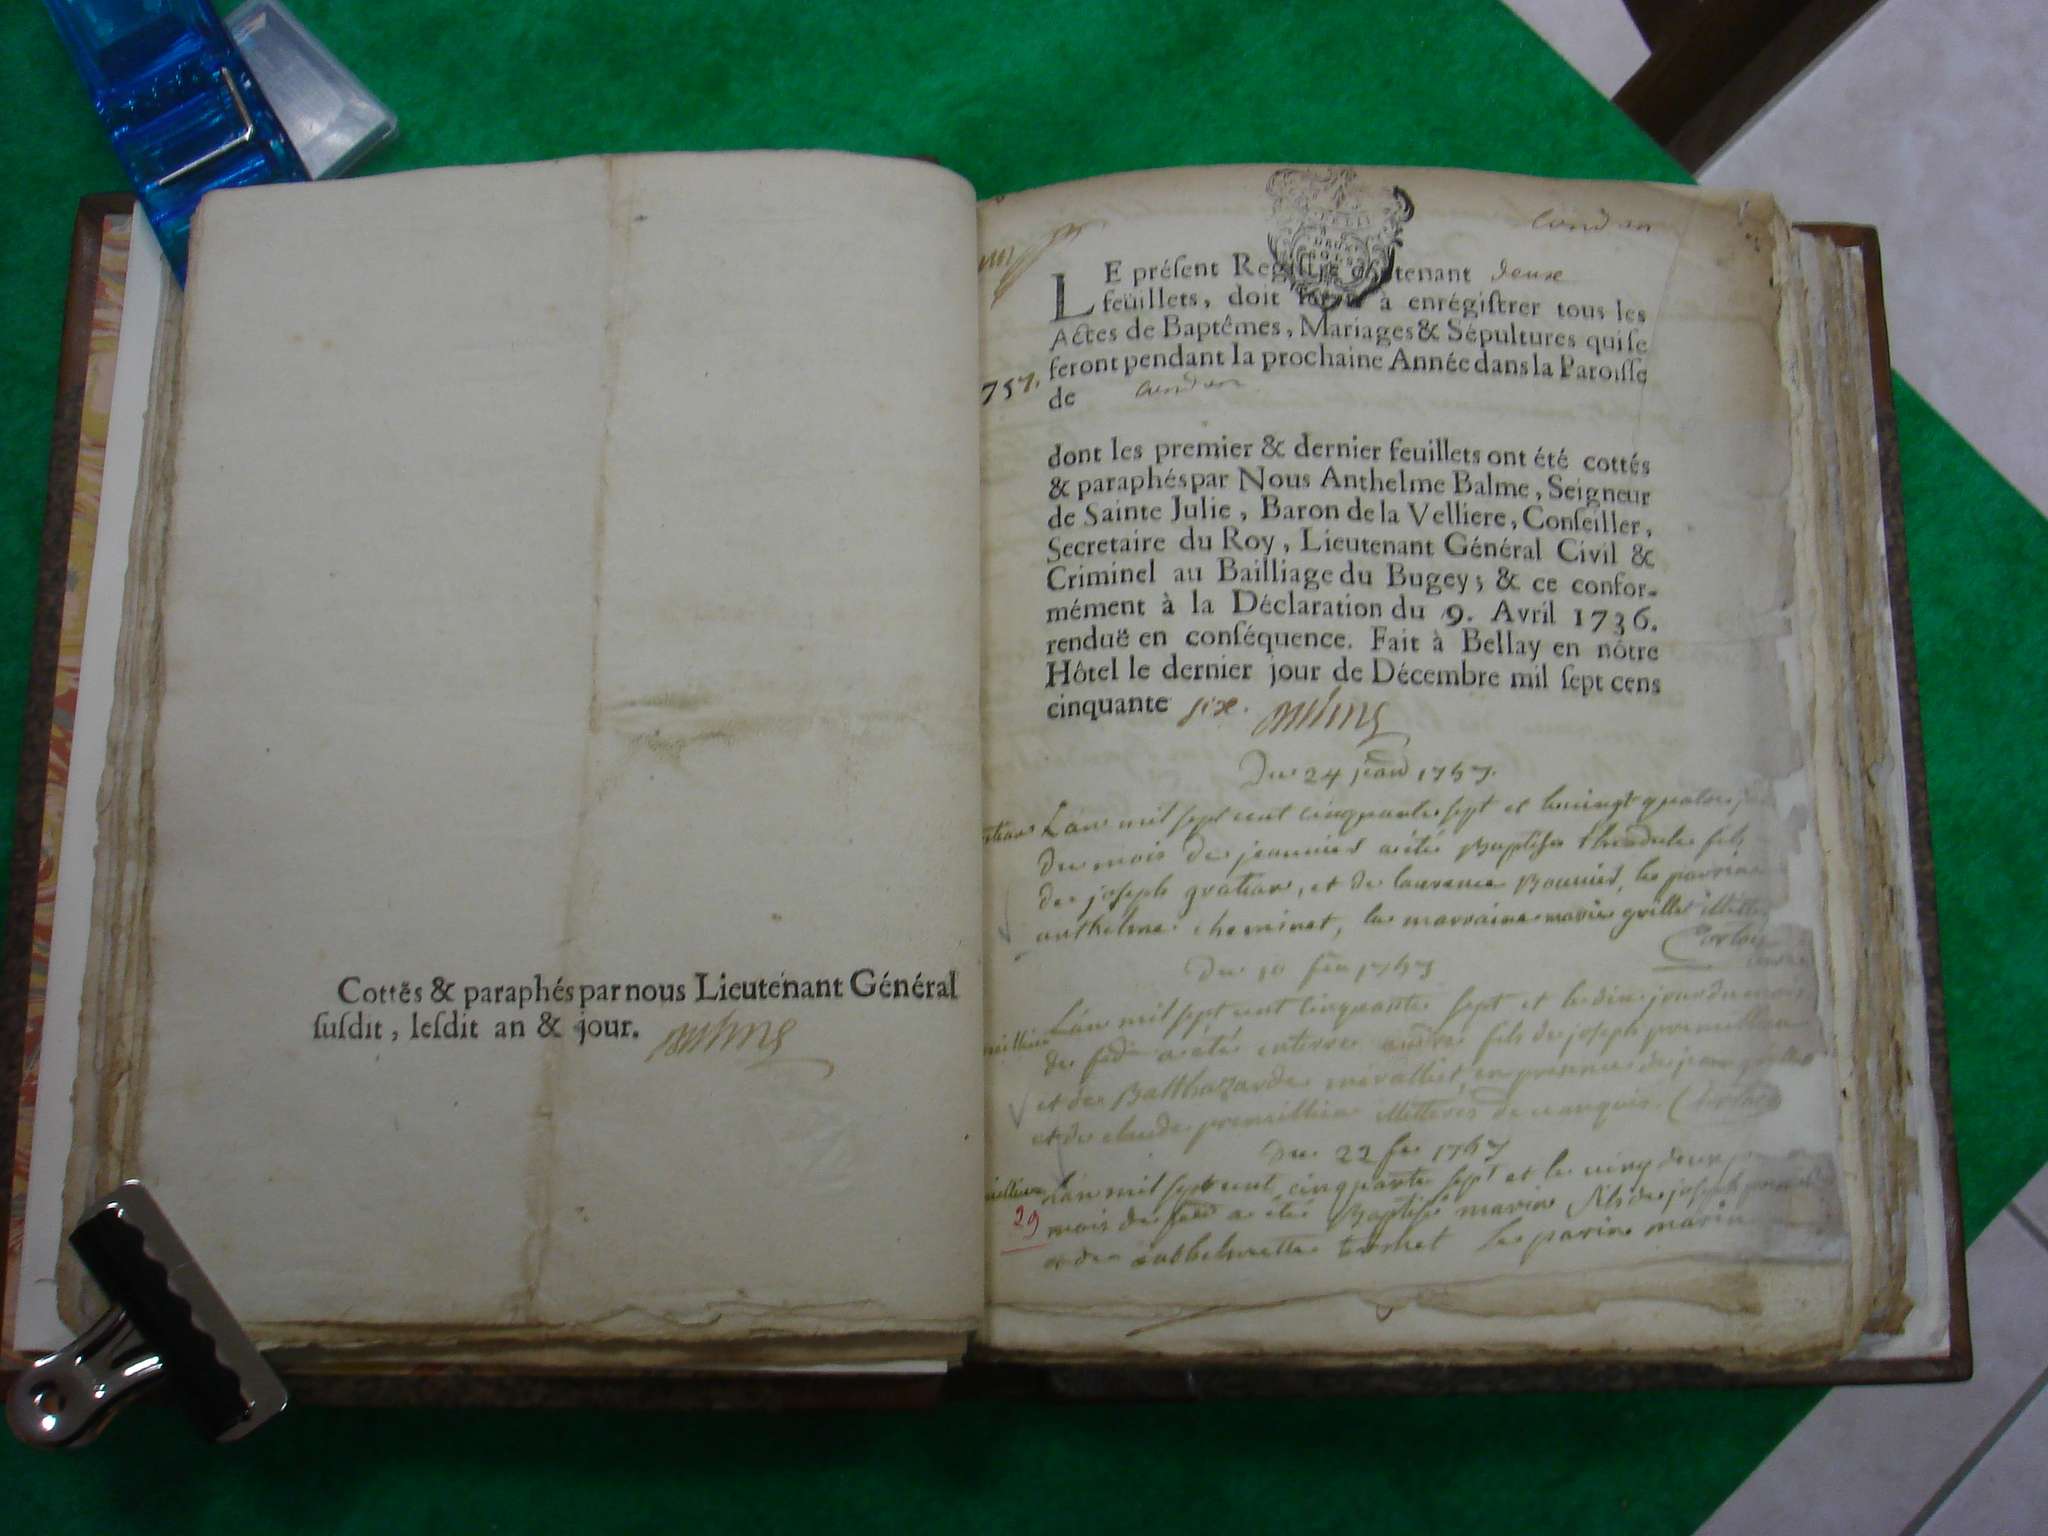 Cottés & paraphés par nous Lieutenant Général
ſuſdit, leſdit an & jour.
Condon
LE préſent Regiſtre contenant deux
feüillets, doit à enrégiſtrer tous les
Actes de Baptêmes, Mariages & Sépultures qui ſe
feront pendant la prochaine Année dans la Paroiſſe
757.
de Condon
dont les premier & dernier feuillets ont été cottés
& paraphés par Nous Anthelme Balme, Seigneur
de Sainte Julie, Baron de la Velliere, Conſeiller,
Secretaire du Roy, Lieutenant Général Civil &
Criminel au Bailliage du Bugey; & ce confor-
mément à la Déclaration du 9. Avril 1736.
renduë en conſéquence. Fait à Bellay en nôtre
Hôtel le dernier jour de Décembre mil ſept cens
cinquante six.
Du 24 janv 1757.
L'an mil sept cent cinquante sept et le vingt quatre
du mois de janvier a été Baptisé théodule fils
de joseph gratian, et de laurence Bonnier, le parrain
anthelme cheminet, la marraine marie grillet
Du 10 fev 1757
L'an mil sept cent cinquante sept et le dix jour du mois
de a été enterré andré fils de joseph
et de Balthazarde en presence de jean
et de claude illitterés de ce enquis.
Du 22 fev 1757
L'an mil sept cent cinquante sept et le vingt deux
29
mois de a été Baptisé marin fils de joseph
et de anthelmette le parrin marin